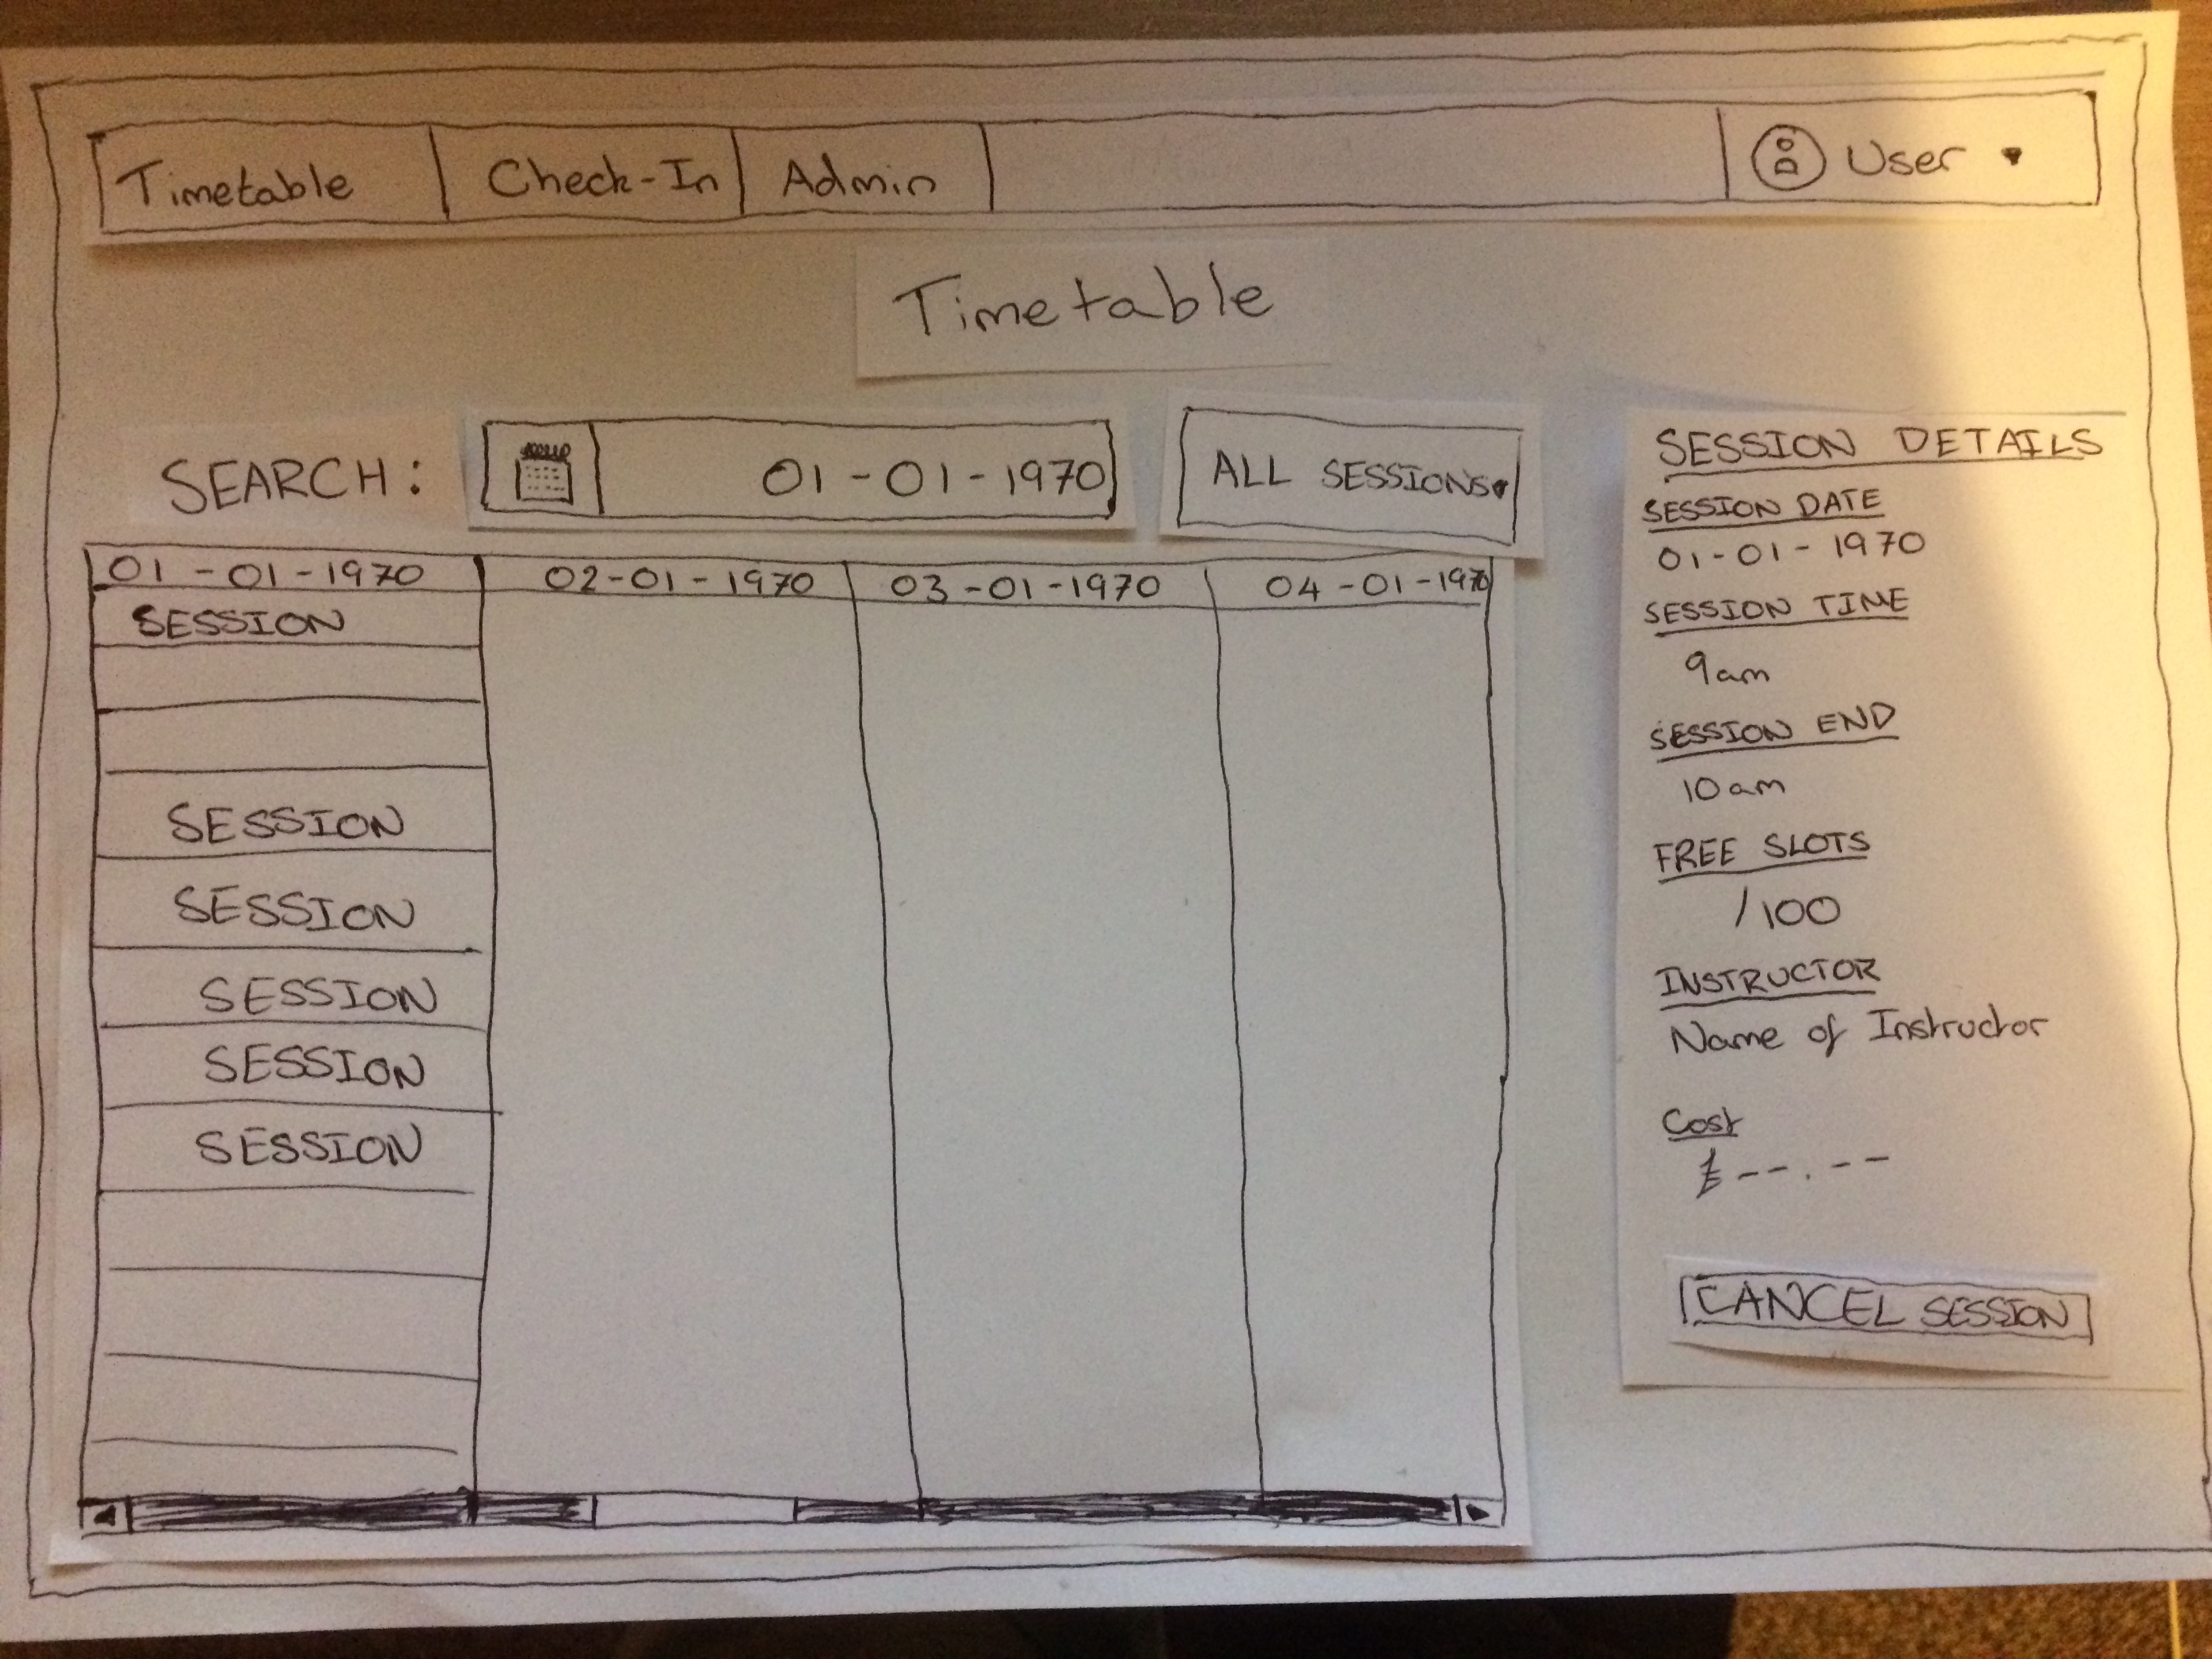 Timetable Check-In Admin User
Timetable
SEARCH: 01-01-1970 ALL SESSIONS
01-01-1970 02-01-1970 03-01-1970 04-01-1970
SESSION
SESSION
SESSION
SESSION
SESSION
SESSION
SESSION DETAILS
SESSION DATE
01-01-1970
SESSION TIME
9am
SESSION END
10am
FREE SLOTS
/100
INSTRUCTOR
Name of Instructor
Cost
£--.--
CANCEL SESSION